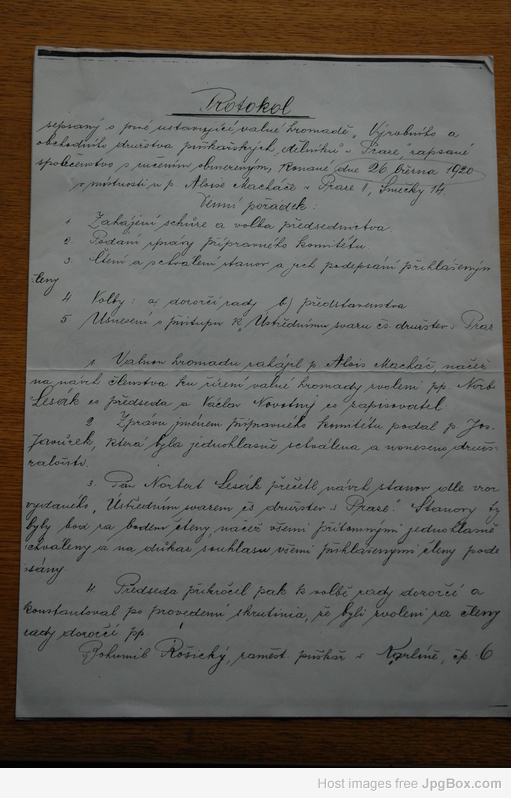 Protokol
sepsaný o prvé ustavující valné hromadě „Výrobního a
obchodního družstva puškařských dělníků v Praze" zapsané
společenstvo s ručením obmezeným, konané dne 26 března 1920
v místnosti u p. Aloise Macháče v Praze I, Smečky 14
Denní pořádek:
1 Zahájení schůze a volba předsednictva
2. Podání zprávy přípravného komitétu
3. Čtení a schválení stanov a jich podepsání přihlášeným
členy
4 Volby: a) dozorčí rady b) představenstva
5 Usnesení o přístupu k „Ústřednímu svazu čs družstev v Praz
1. Valnou hromadu zahájil p. Alois Macháč, načež
na návrh členstva ku řízení valné hromady zvoleni pp. Norb
Lesák co předseda a Václav Novotný co zapisovatel.
2 Zprávu jménem přípravného komitétu podal p. Jos.
Javůrek, která byla jednohlasně schválena a
3. Pan Norbert Lesák přečetl návrh stanov dle vzor
vydaného „Ústředním svazem čs družstev v Praze." Stanovy ty
byly bod za bodem čteny, načež všemi přítomnými jednohlasně
schváleny a na důkaz souhlasu všemi přihlášenými členy pode
sány.
4. Předseda přikročil pak k volbě rady dozorčí a
konstantoval po provedení skrutinia, že byli zvoleni za členy
rady dozorčí pp
Bohumil Rošický, zaměst. puškař v Karlíně, čp. 6
Host images free JpgBox.com